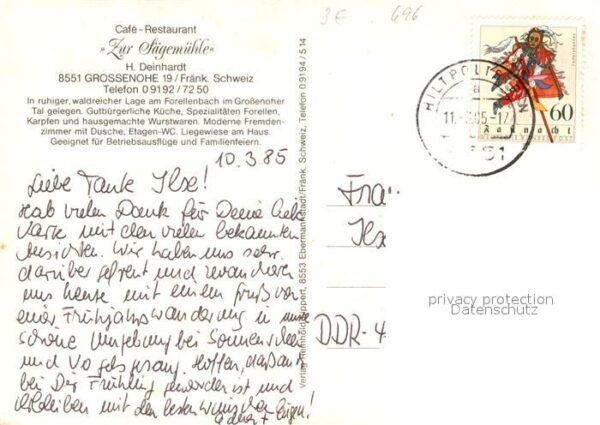 3 E 696
Café - Restaurant
"Zur Sägemühle"
H. Deinhardt
8551 GROSSENOHE 19 / Fränk. Schweiz
Telefon 0 91 92 / 72 50
In ruhiger, waldreicher Lage am Forellenbach im Großenoher
Tal gelegen. Gutbürgerliche Küche, Spezialitäten Forellen,
Karpfen und hausgemachte Wurstwaren. Moderne Fremden-
zimmer mit Dusche, Etagen-WC. Liegewiese am Haus.
Geeignet für Betriebsausflüge und Familienfeiern.
10.3.85
Liebe Tante Ilse!
Hab vielen Dank für Deine liebe
Karte mit den vielen bekannten
Ansichten. Wir haben uns sehr
darüber gefreut und revanchieren
uns heute mit einem Gruß von
einer Frühjahrswanderung in unserer
schönen Umgebung bei Sonnenschein
und Vogelgesang. Hoffen, daß auch
bei Dir Frühling geworden ist und
verbleiben mit den besten Wünschen
Verlag Reinhold Leppert, 8553 Ebermannstadt/Fränk. Schweiz, Telefon 0 91 94 / 5 14
Frau
Ilse
DDR-4
HILTPOLTSTEIN
a
11.-3.85-17
8551
60
Fastnacht
DEUTSCHE BUNDESPOST
privacy protection
Datenschutz